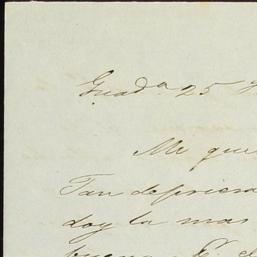 Guadª 25
Me que
Tan depriesa
doy la mas
buena